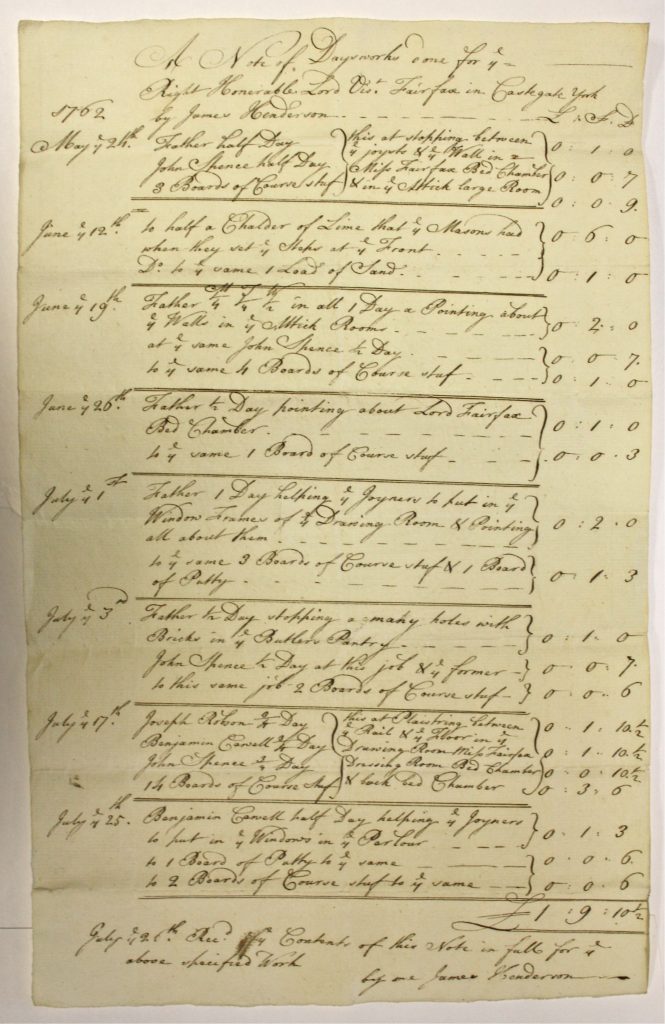 A Note of Daysworks done for yᵉ
Right Honerable Lord Visᵗ. Fairfax in Castegate York
1762 by James Henderson £ : S. D
May yᵉ 24th. Father half Day this at stopping between 0 : 1 : 0
John Spence half Day yᵉ joysts & yᵉ Wall in
3 Boards of Course stuf Miss Fairfax Bed Chamber 0 : 0 : 7
& in yᵉ Attick large Room 0 : 0 : 9.
June yᵉ 12th. to half a Chalder of Lime that yᵉ Masons had
when they set yᵉ Steps at yᵉ Front 0 : 6 : 0
Dᵒ. to yᵉ same 1 Load of Sand. 0 : 1 : 0
M T W
June yᵉ 19th. Father ¼ ¼ ½ in all 1 Day a Pointing about
yᵉ Walls in yᵉ Attick Rooms 0 : 2 : 0
at yᵉ same John Spence ½ Day 0 : 0 : 7.
to yᵉ same 4 Boards of Course stuf 0 : 1 : 0
June yᵉ 26th. Father ½ Day pointing about Lord Fairfax
Bed Chamber. 0 : 1 : 0
to yᵉ same 1 Board of Course stuf 0 : 0 : 3
July yᵉ 1st Father 1 Day helping yᵉ Joyners to put in yᵉ
Window Frames of yᵉ Drawing Room & Pointing 0 : 2 : 0
all about them
to yᵉ same 3 Boards of Course stuf & 1 Board
of Putty 0 : 1 : 3
July yᵉ 3d Father ½ Day stopping a many holes with
Bricks in yᵉ Butlers Pantry 0 : 1 : 0
John Spence ½ Day at this job & yᵉ former 0 : 0 : 7.
to this same job 2 Boards of Course stuf 0 : 0 : 6
July yᵉ 17th. Joseph Robson ¾ Day this at Plaistring between 0 : 1 : 10½
Benjamin Carvell ¾ Day yᵉ Rail & yᵉ Floor in yᵉ
Drawing Room Miss Fairfax 0 : 1 : 10½
John Spence ¾ Day Dressing Room Bed Chamber 0 : 0 : 10½
14 Boards of Course Stuf & back bed Chamber 0 : 3 : 6
July yᵉ 25th. Benjamin Carvell half Day helping yᵉ Joyners
to put in yᵉ Windows in yᵉ Parlour 0 : 1 : 3
to 1 Board of Putty to yᵉ same 0 : 0 : 6.
to 2 Boards of Course stuf to yᵉ same 0 : 0 : 6
£1 : 9 : 10½
July yᵉ 26th Recᵈ. yᵉ Contents of this Note in full for yᵉ
above specified Work
by me James Henderson